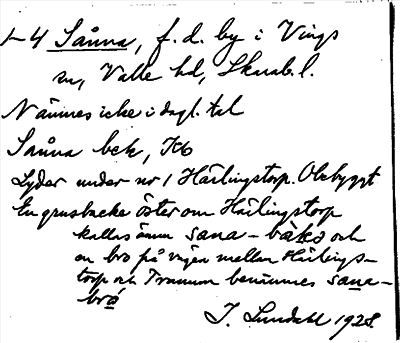 L4 Sånna, f. d. by i Vings
sn, Valle hd, Skarab. l.
Nämnes icke i dagl. tal
Sånna bek, Kb
Lyder under nr 1 Härlingstorp. Obebyggt
En grusbacke öster om Härlingstorp
kallas ännu sana-bäkə och
en bro på vägen mellan Härlings-
torp och Tranum benämnes sana-
brö
I. Lundahl 1928.